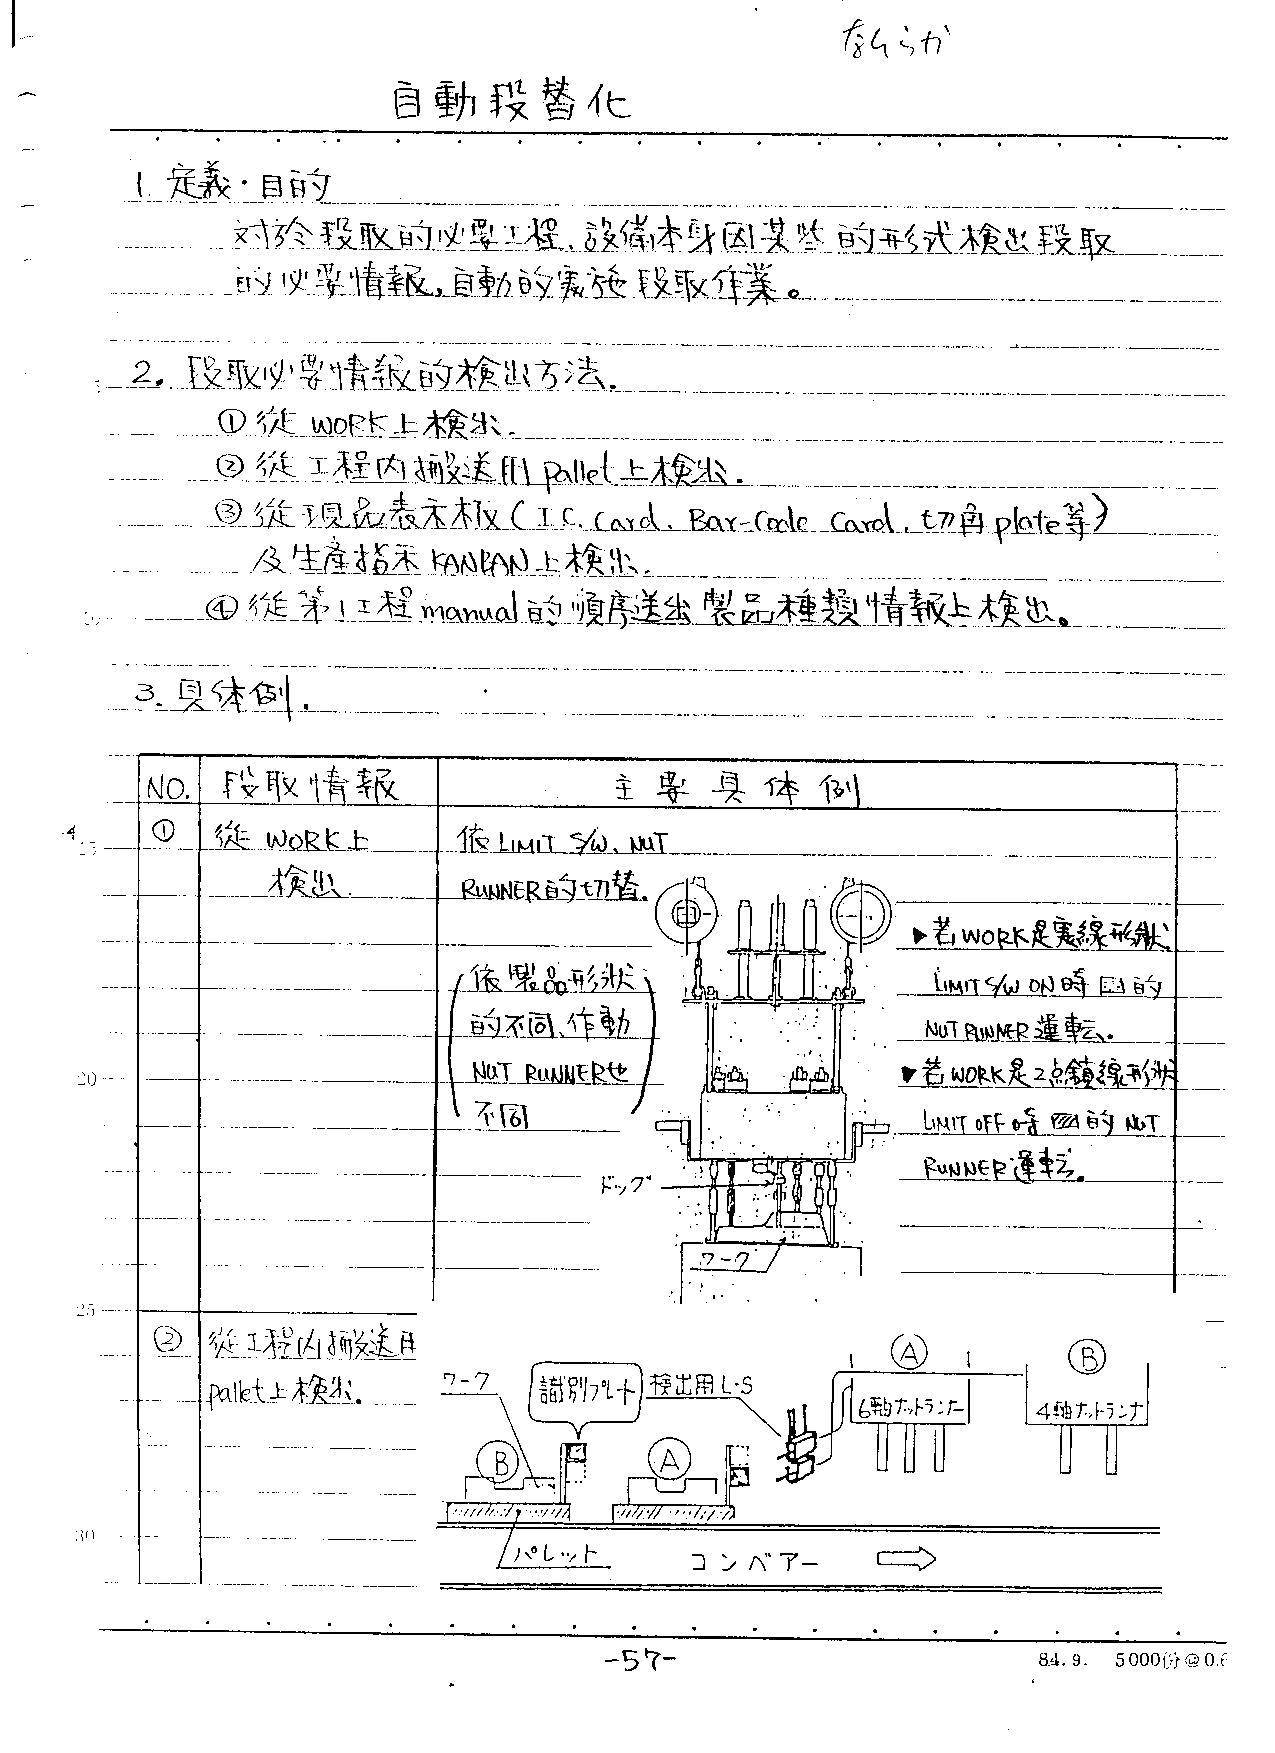 なんらか
自動段替化
1. 定義・目的
対於段取的必要工程、設備本身因某些的形式検出段取
的必要情報，自動的実施段取作業。
2. 段取必要情報的検出方法.
① 従 WORK上検出.
② 従工程内搬送用 pallet上検出.
③ 従現品表示板(I.C. Card. Bar-Code Card. 切角plate等)
及生産指示KANBAN上検出.
④ 従第1工程manual的順序送出製品種類情報上検出。
3. 具体例.
NO. 段取情報 主要具体例
① 従 WORK上
検出.
依LIMIT S/W、NUT
RUNNER的切替.
(依製品形状
的不同、作動
NUT RUNNER也
不同)
▶若WORK是実線形状
LIMIT S/W ON時 的
NUT RUNNER運転.
▼若WORK是2点鎖線形状
LIMIT OFF時 的NUT
RUNNER運転.
ドッグ
ワーク
② 従工程内搬送用
pallet上検出.
ワーク
識別プレート
検出用L・S
A
6軸ナットランナー
B
4軸ナットランナ
B
A
パレット
コンベアー
-57-
84.9. 5000份@0.6
25
20
25
30